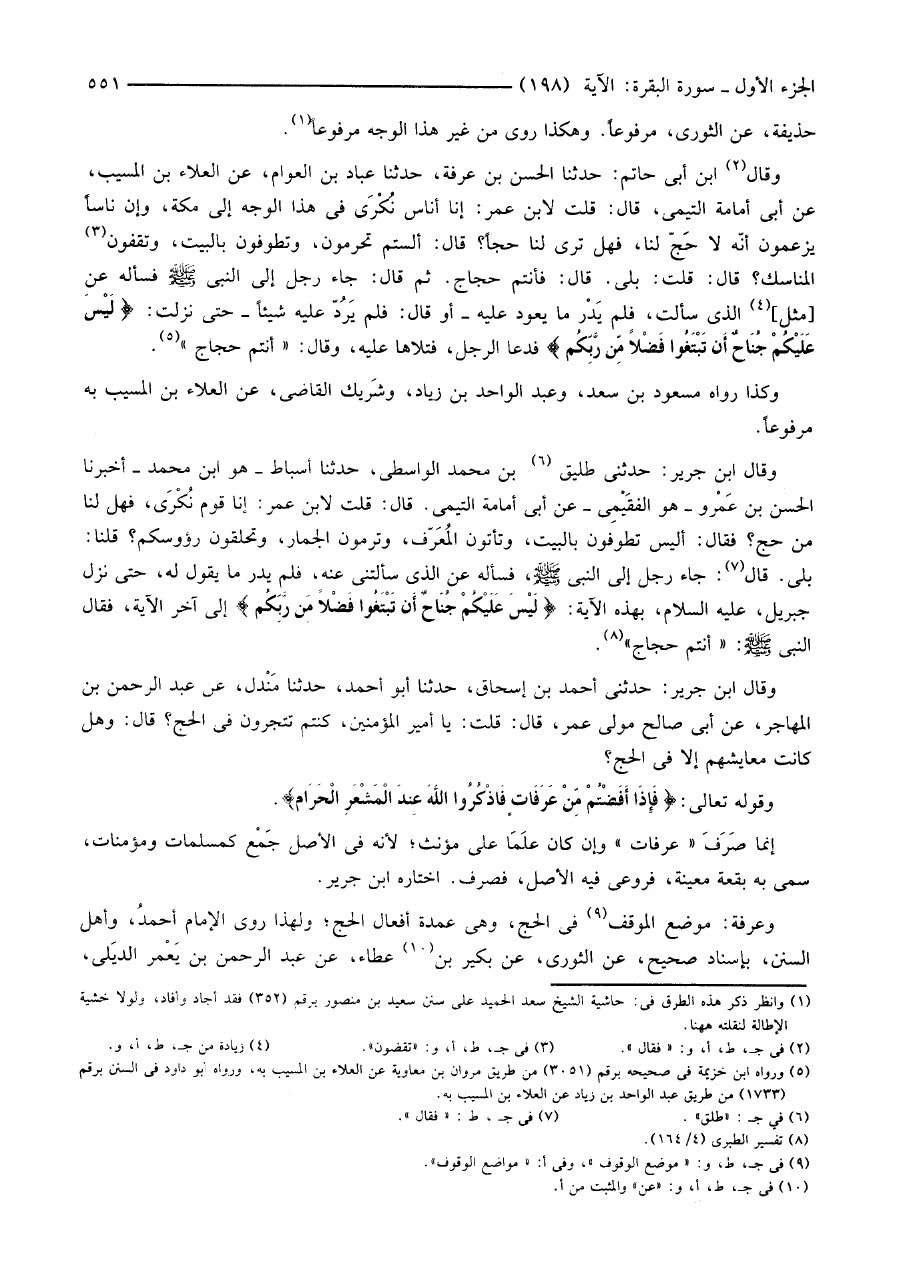 الجزء الأول ـ سورة البقرة: الآية (١٩٨) ــــــــ ٥٥١
حذيفة، عن الثورى، مرفوعاً. وهكذا روى من غير هذا الوجه مرفوعاً(١).
وقال(٢) ابن أبى حاتم: حدثنا الحسن بن عرفة، حدثنا عباد بن العوام، عن العلاء بن المسيب،
عن أبى أمامة التيمى، قال: قلت لابن عمر: إنا أناس نُكْرَى فى هذا الوجه إلى مكة، وإن ناساً
يزعمون أنّه لا حَجّ لنا، فهل ترى لنا حجاً؟ قال: ألستم تحرمون، وتطوفون بالبيت، وتقفون(٣)
المناسك؟ قال: قلت: بلى. قال: فأنتم حجاج. ثم قال: جاء رجل إلى النبى ﷺ فسأله عن
[مثل](٤) الذى سألت، فلم يَدْر ما يعود عليه ـ أو قال: فلم يَرُدّ عليه شيئاً ـ حتى نزلت: ﴿ لَيْسَ
عَلَيْكُمْ جُنَاحٌ أَن تَبْتَغُوا فَضْلاً مِّن رَّبِّكُم ﴾ فدعا الرجل، فتلاها عليه، وقال: « أنتم حجاج »(٥).
وكذا رواه مسعود بن سعد، وعبد الواحد بن زياد، وشَريك القاضى، عن العلاء بن المسيب به
مرفوعاً.
وقال ابن جرير: حدثنى طليق (٦) بن محمد الواسطى، حدثنا أسباط ـ هو ابن محمد ـ أخبرنا
الحسن بن عَمْرو ـ هو الفقَيْمِى ـ عن أبى أمامة التيمى. قال: قلت لابن عمر: إنا قوم نُكْرَى، فهل لنا
من حج؟ فقال: أليس تطوفون بالبيت، وتأتون المُعَرَّف، وترمون الجمار، وتحلقون رؤوسكم؟ قلنا:
بلى. قال(٧): جاء رجل إلى النبى ﷺ، فسأله عن الذى سألتنى عنه، فلم يدر ما يقول له، حتى نزل
جبريل، عليه السلام، بهذه الآية: ﴿ لَيْسَ عَلَيْكُمْ جُنَاحٌ أَن تَبْتَغُوا فَضْلاً مّن رَّبِّكُم ﴾ إلى آخر الآية، فقال
النبى ﷺ: « أنتم حجاج»(٨).
وقال ابن جرير: حدثنى أحمد بن إسحاق، حدثنا أبو أحمد، حدثنا مَنْدل، عن عبد الرحمن بن
المهاجر، عن أبى صالح مولى عمر، قال: قلت: يا أمير المؤمنين، كنتم تتجرون فى الحج؟ قال: وهل
كانت معايشهم إلا فى الحج؟
وقوله تعالى: ﴿ فَإِذَا أَفَضْتُمْ مِّنْ عَرَفَاتٍ فَاذْكُرُوا اللَّهَ عِندَ الْمَشْعَرِ الْحَرَامِ﴾.
إنما صَرَفَ « عرفات » وإن كان علَمَا على مؤنث؛ لأنه فى الأصل جَمْع كمسلمات ومؤمنات،
سمى به بقعة معينة، فروعى فيه الأصل، فصرف. اختاره ابن جرير.
وعرفة: موضع الموقف(٩) فى الحج، وهى عمدة أفعال الحج؛ ولهذا روى الإمام أحمدُ، وأهل
السنن، بإسناد صحيح، عن الثورى، عن بكير بن(١٠) عطاء، عن عبد الرحمن بن يَعْمر الديَلى،
(١) وانظر ذكر هذه الطرق فى: حاشية الشيخ سعد الحميد على سنن سعيد بن منصور برقم (٣٥٢) فقد أجاد وأفاد، ولولا خشية
الإطالة لنقلته ههنا.
(٢) فى جـ، ط، أ، و: « فقال ». (٣) فى جـ، ط، أ، و: «تقضون». (٤) زيادة من جـ، ط، أ، و.
(٥) ورواه ابن خزيمة فى صحيحه برقم (٣٠٥١) من طريق مروان بن معاوية عن العلاء بن المسيب به، ورواه أبو داود فى السنن برقم
(١٧٣٣) من طريق عبد الواحد بن زياد عن العلاء بن المسيب به.
(٦) في جـ : «طلق» . (٧) فى جـ ، ط : « فقال ».
(٨) تفسير الطبرى (٤/ ١٦٤).
(٩) فى جـ، ط، و: « موضع الوقوف »، وفى أ: « مواضع الوقوف».
(١٠) فى جـ، ط، أ، و: «عن» والمثبت من أ.